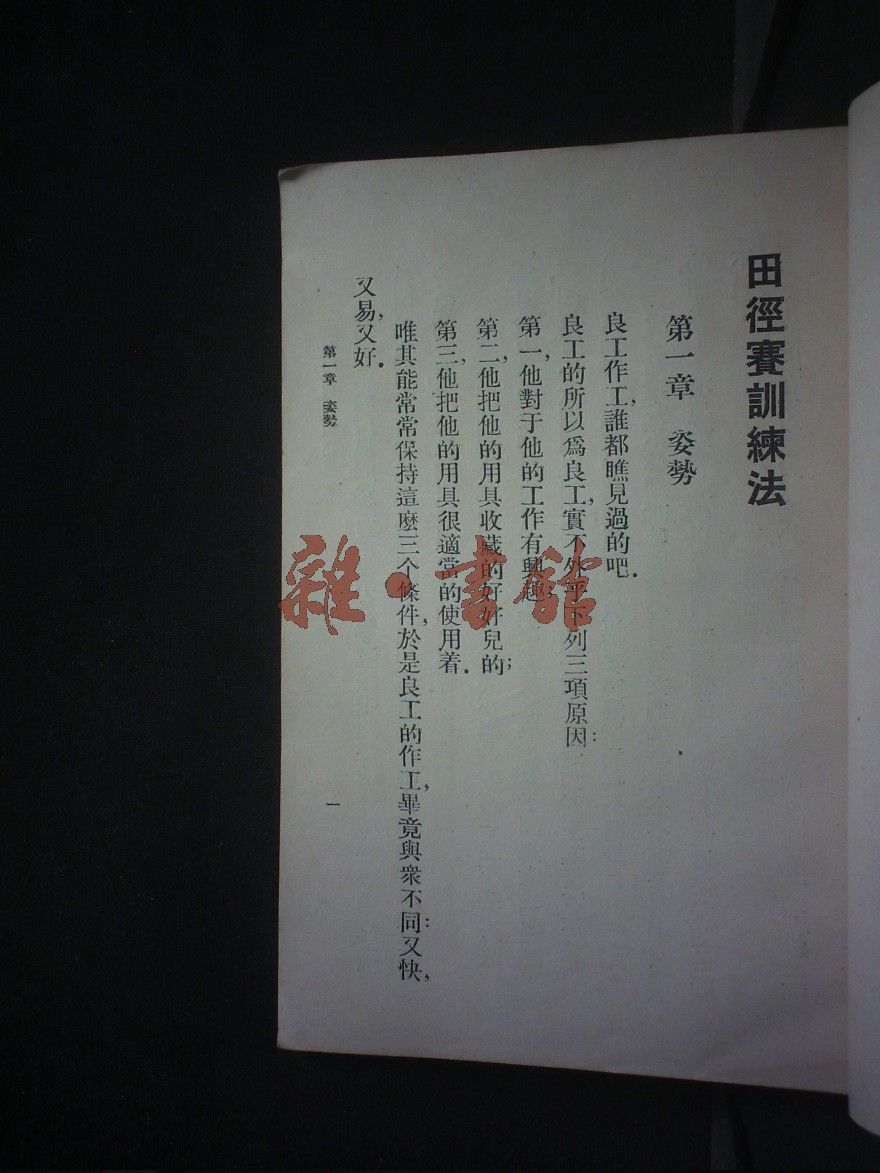 田徑賽訓練法
第一章　姿勢
良工作工，誰都瞧見過的吧．
良工的所以爲良工，實不外乎下列三項原因：
第一，他對于他的工作有興趣；
第二，他把他的用具收藏的好好兒的；
第三，他把他的用具很適當的使用着．
唯其能常常保持這麽三个條件，於是良工的作工，畢竟與衆不同：又快，
又易，又好．
第一章　姿勢
一
雜·書館